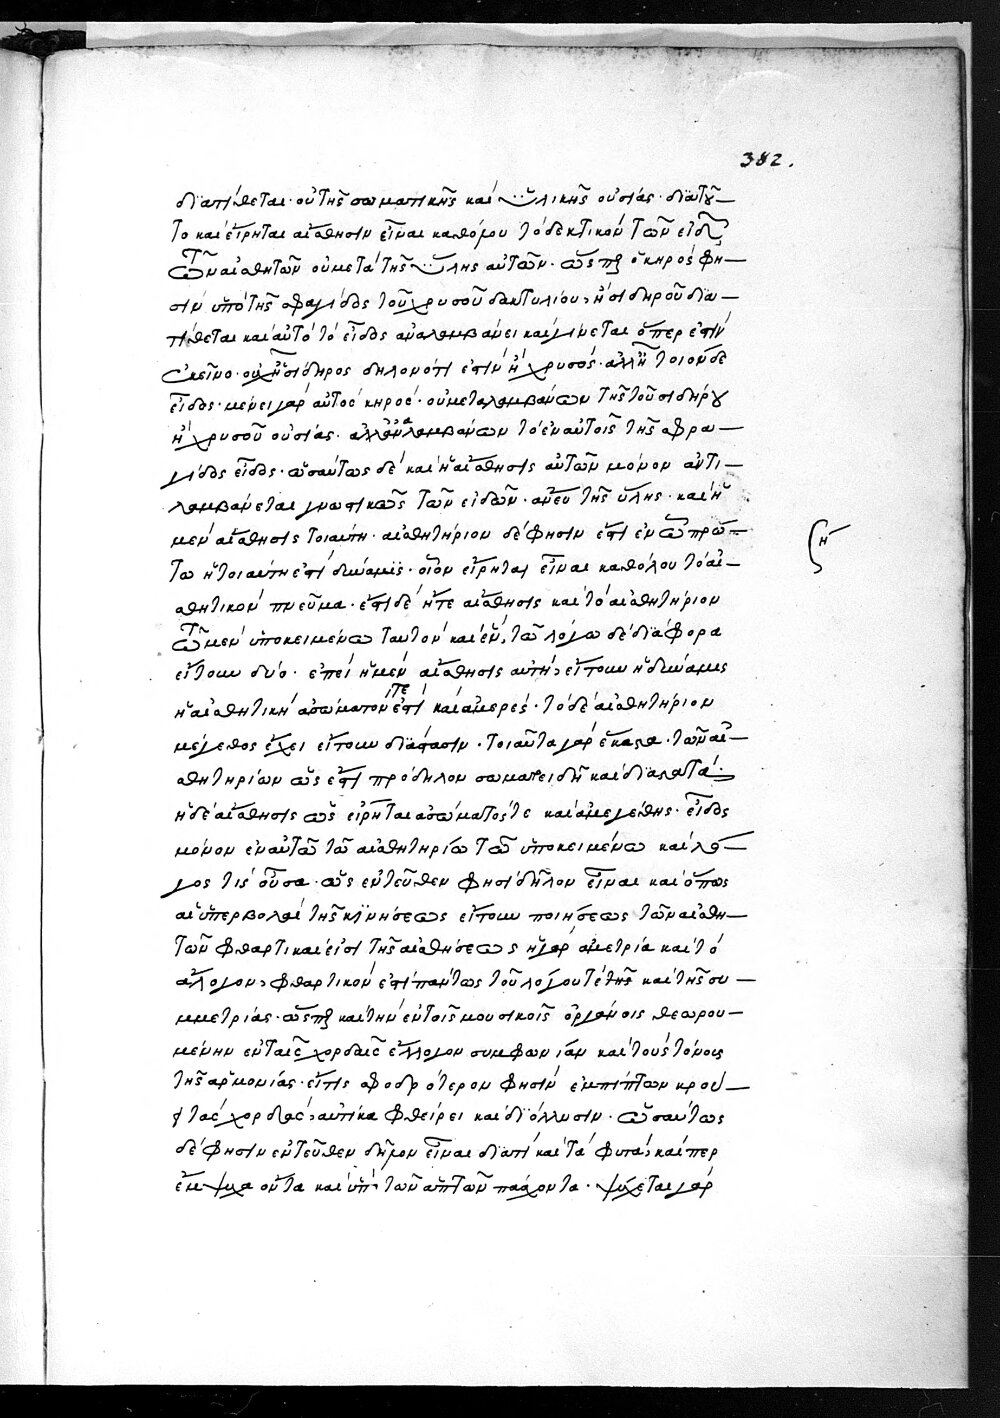 382.
διατίθεται· οὐ τῆς σωματικῆς καὶ ὑλικῆς οὐσίας· διὰ τοῦ-
το καὶ εἴρηται αἴσθησιν εἶναι καθόλου τὸ δεκτικὸν τῶν εἰδῶν
τῶν αἰσθητῶν οὐ μετὰ τῆς ὕλης αὐτῶν· ὥσπερ ὁ κηρός φη-
σιν ὑπὸ τῆς σφραγίδος τοῦ χρυσοῦ δακτυλίου, ἢ σιδηροῦ δια-
τίθεται καὶ αὐτὸ τὸ εἶδος ἀναλαμβάνει καὶ γίνεται ὅπερ ἐστὶν
ἐκεῖνο· οὐχ ᾗ σίδηρος δηλονότι ἐστὶν ἢ χρυσός· ἀλλ' ᾗ τοιόνδε
εἶδος· μένει γὰρ αὐτὸς κηρός· οὐ μεταλαμβάνων τῆς τοῦ σιδήρου
ἢ χρυσοῦ οὐσίας· ἀλλ' ἀναλαμβάνων τὸ ἐν αὐτοῖς τῆς σφρα-
γίδος εἶδος· ὡσαύτως δὲ καὶ ἡ αἴσθησις αὐτῶν μόνον ἀντι-
λαμβάνεται γνωστικῶς τῶν εἰδῶν· ἄνευ τῆς ὕλης· καὶ ἡ
μὲν αἴσθησις τοιαύτη· αἰσθητήριον δέ φησιν ἐστὶ ἐν ᾧ πρώ-
τω ἡ τοιαύτη ἐστὶ δύναμις· οἷον εἴρηται εἶναι καθόλου τὸ αἰ-
ἡ
σθητικὸν πνεῦμα· ἔστι δὲ ἥτε αἴσθησις καὶ τὸ αἰσθητήριον
τῶ μὲν ὑποκειμένω ταυτὸν καὶ ἕν, τῶ λόγω δὲ διάφορα
εἴτουν δύο· ἐπεὶ ἡ μὲν αἴσθησις αὐτή, εἴτουν ἡ δύναμις
ἡ αἰσθητικὴ ἀσώματόν τέ ἐστι καὶ ἀμερές· τὸ δὲ αἰσθητήριον
μέγεθος ἔχει εἴτουν διάστασιν· τοιαῦτα γὰρ ἕκαστα· τῶν αἰ-
σθητηρίων ὡς ἔστι πρόδηλον σωματειδῆ καὶ διαστατά·
ἡ δὲ αἴσθησις ὡς εἴρηται ἀσώματός τε καὶ ἀμεγέθης· εἶδος
μόνον ἐν αὐτῶ τῶ αἰσθητηρίω τῶ ὑποκειμένω καὶ λό-
γος τὶς οὖσα· ὡς ἐντεῦθεν φησὶ δῆλον εἶναι καὶ ὅπως
αἱ ὑπερβολαὶ τῆς κινήσεως εἴτουν ποιήσεως τῶν αἰσθη-
τῶν φθαρτικαί εἰσι τῆς αἰσθήσεως ἡ γὰρ ἀμετρία καὶ τὸ
ἄλογον, φθαρτικόν ἐστι πάντως τοῦ λόγου τὲ τῆς καὶ τῆς συ-
μμετρίας· ὥσπερ καὶ τὴν ἐν τοῖς μουσικοῖς ὀργάνοις θεωρου-
μένην ἐν ταῖς χορδαῖς ἔλλογον συμφωνίαν καὶ τοὺς τόνους
τῆς ἁρμονίας· εἴ τις σφοδρότερον φησὶν ἐμπίπτων κρού-
ει τὰς χορδάς, αὐτίκα φθείρει καὶ διόλλυσιν· ὡσαύτως
δέ φησιν ἐντεῦθεν δῆλον εἶναι διατί καὶ τὰ φυτά, καίπερ
ἔμψυχα ὄντα καὶ ὑπὸ τῶν ἁπτῶν πάσχοντα· ψύχεται γὰρ